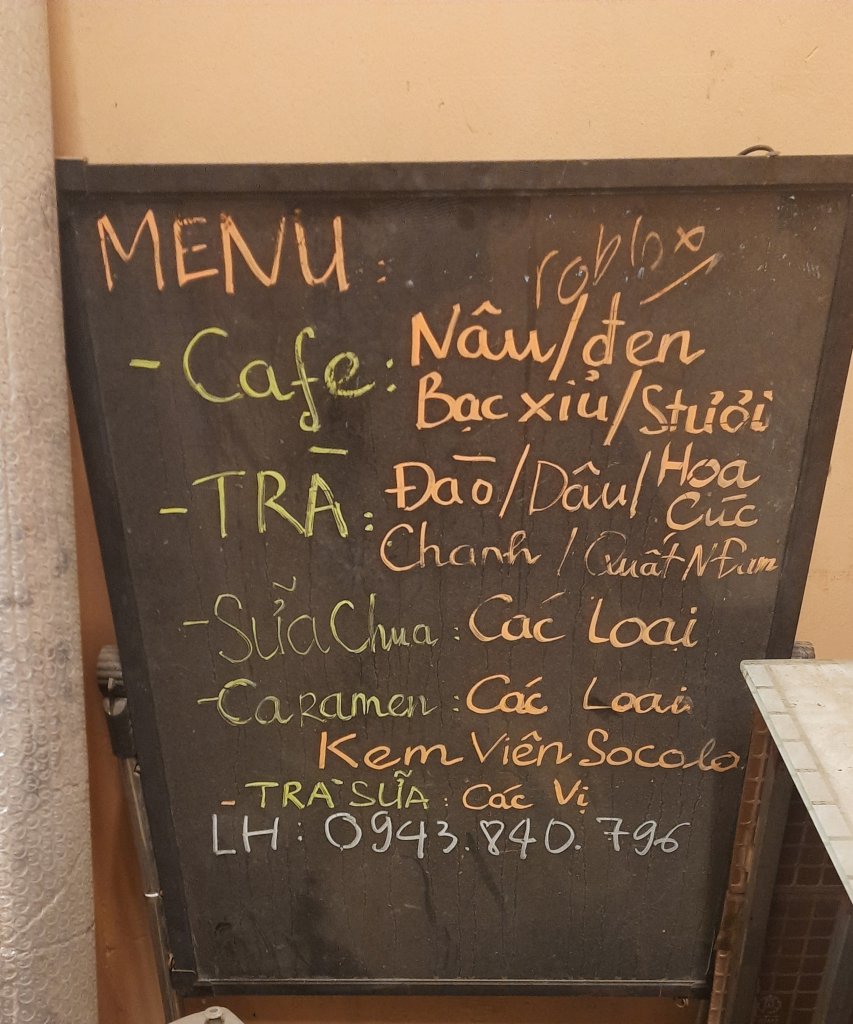 MENU:
roblox
- Cafe: Nâu/đen
Bạc xiủ/Stưởi
- TRÀ: Đào/Dâu/Hoa Cúc
Chanh / Quất N Đum
- Sữa Chua: Các Loại
- Caramen: Các Loai
Kem Viên Socola
- TRÀ SỮA: Các Vị
LH: 0943.840.796